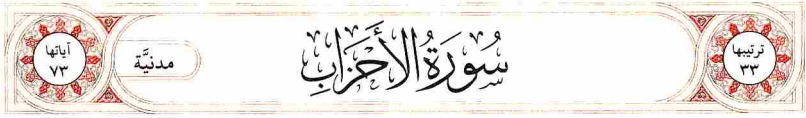 ترتيبها
٣٣
سُورَةُ الأَحْزَابِ
مدنيَّة
آياتها
٧٣